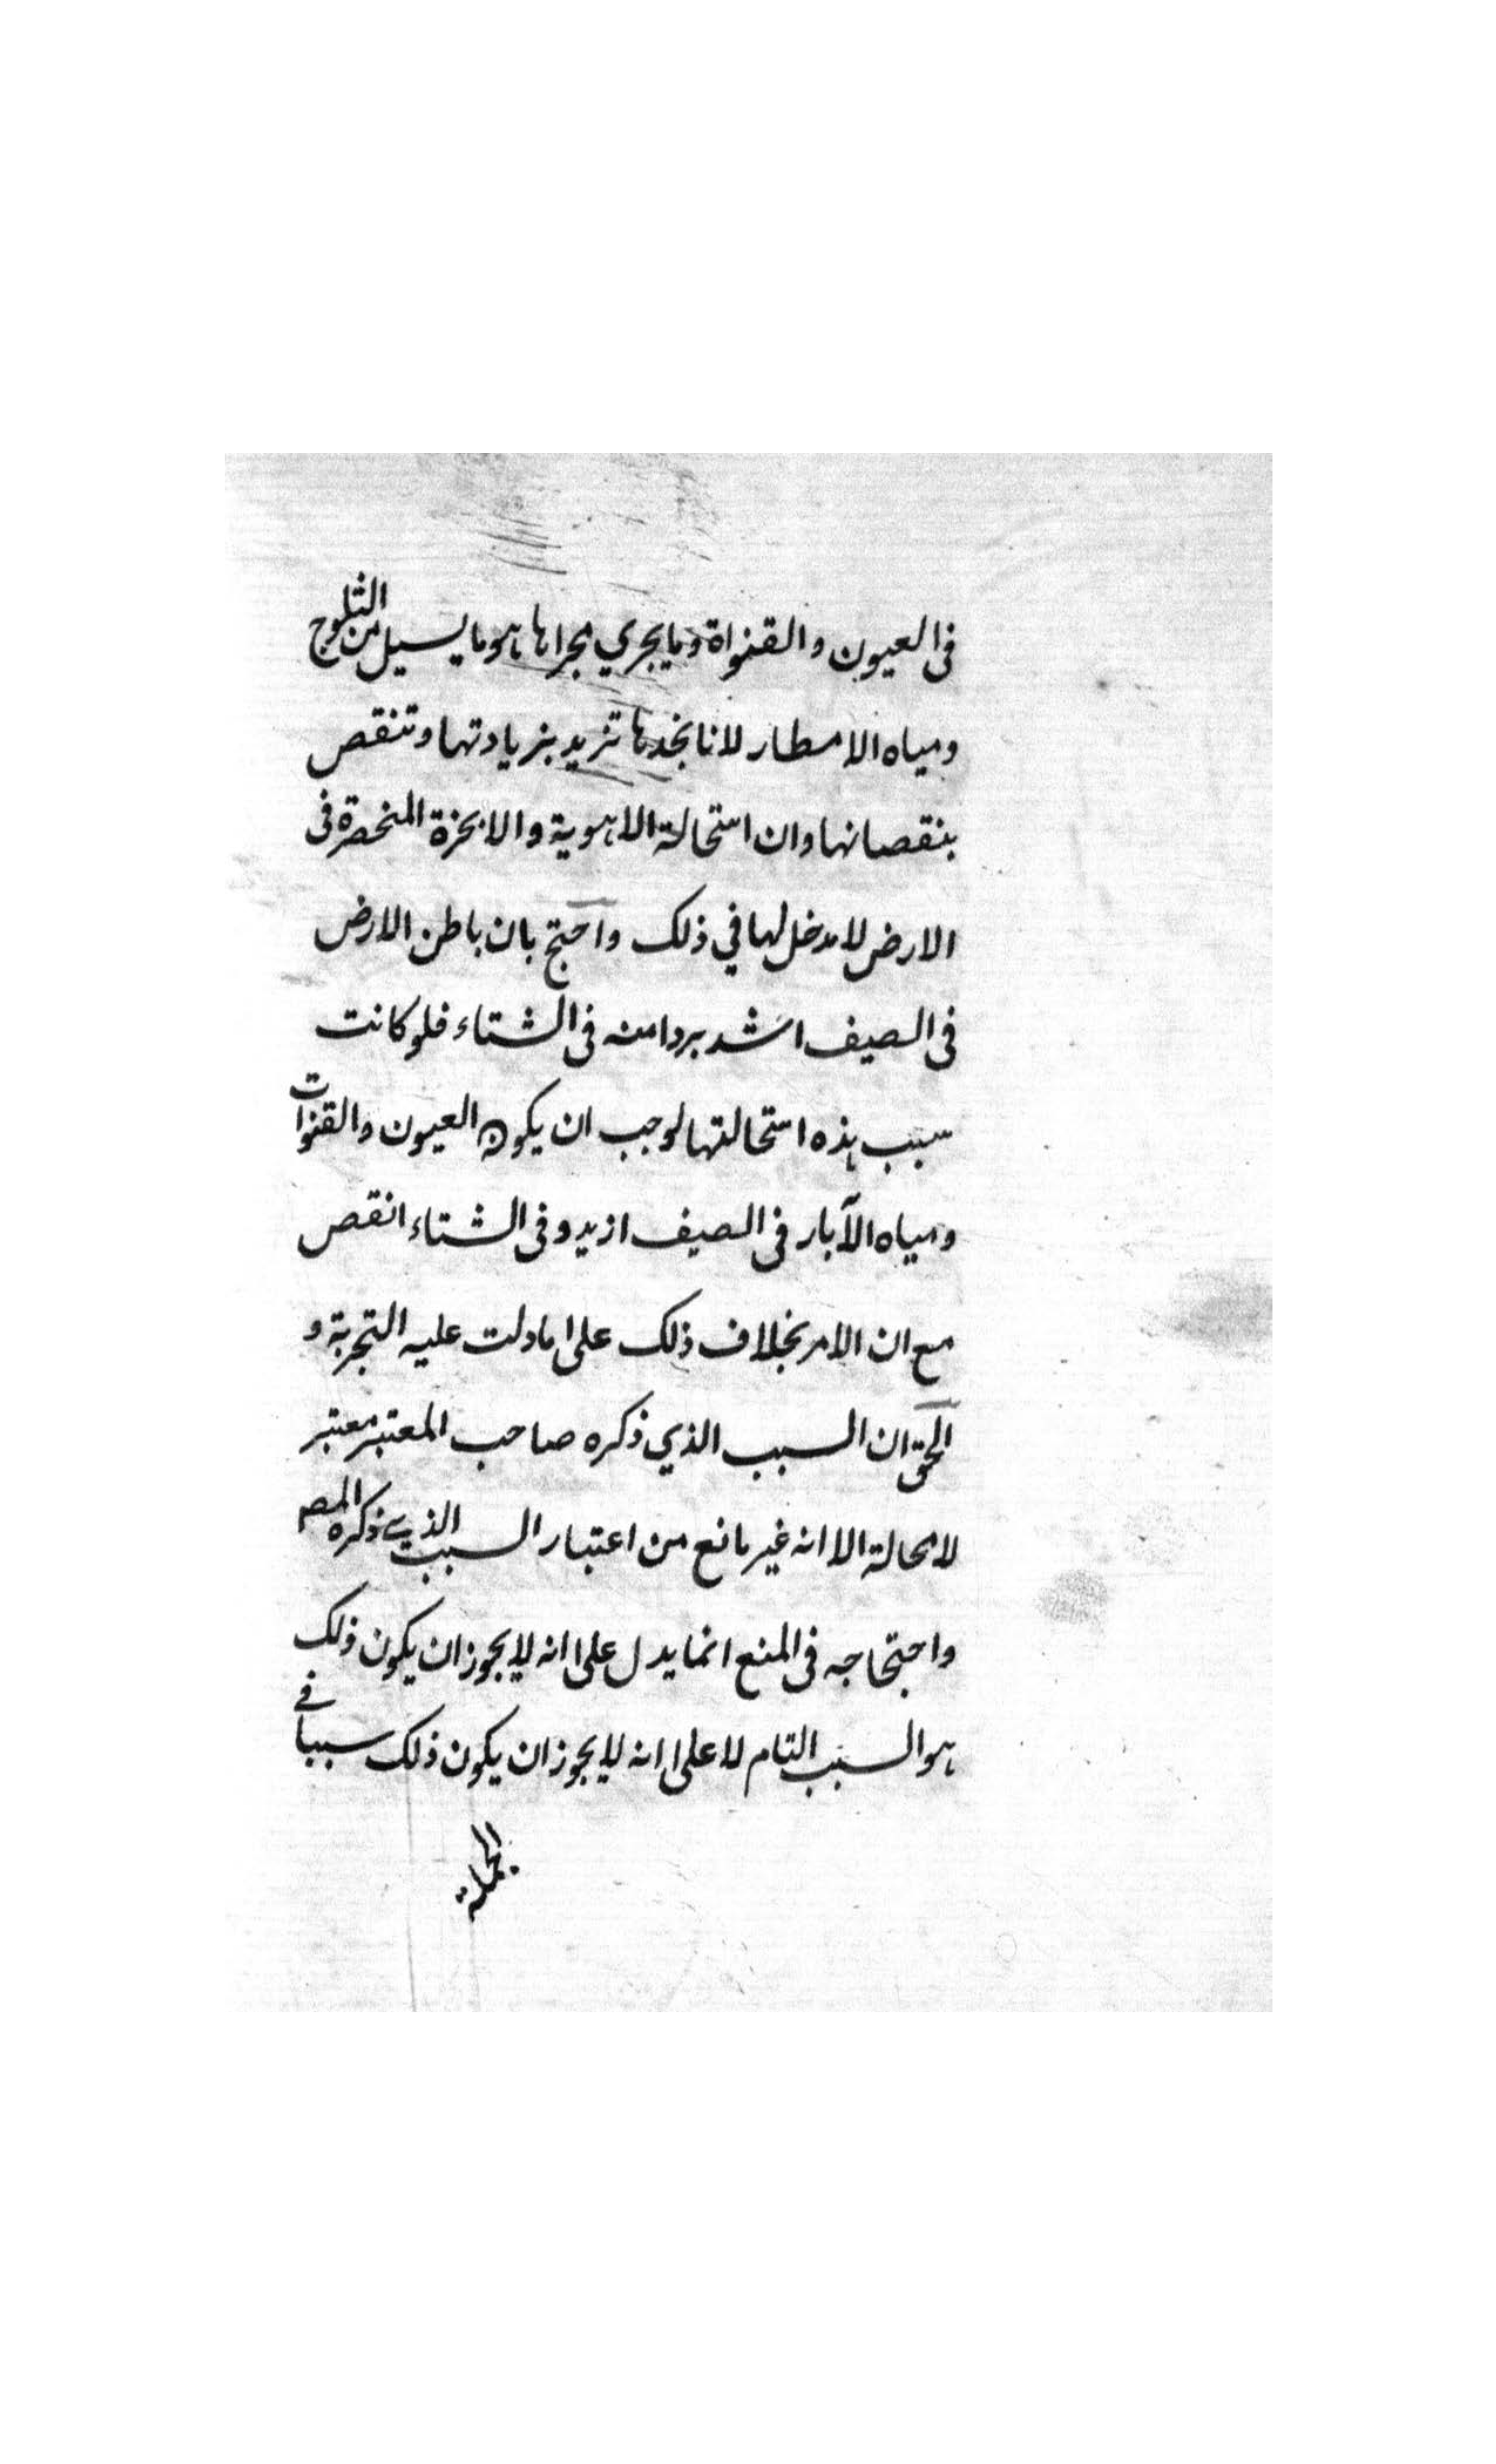 في العيون والقنواة وما يجري مجراها هو ما يسيل من الثلوج
ومياه الامطار لانا نجدها تزيد بزيادتها وتنقص
بنقصانها وان استحالة الاهوية والابخرة المنحصرة في
الارض لا مدخل لها في ذلك واحتج بان باطن الارض
في الصيف اشد بردا منه في الشتاء فلو كانت
سبب هذه استحالتها لوجب ان يكون العيون والقنوات
ومياه الآبار في الصيف ازيد وفي الشتاء انقص
مع ان الامر بخلاف ذلك على ما دلت عليه التجربة و
الحق ان السبب الذي ذكره صاحب المعتبر معتبر
لا محالة الا انه غير مانع من اعتبار السبب الذي ذكره المص
واحتجاجه في المنع انما يدل على انه لا يجوز ان يكون ذلك
هو السبب التام لا على انه لا يجوز ان يكون ذلك سببا في
الجملة